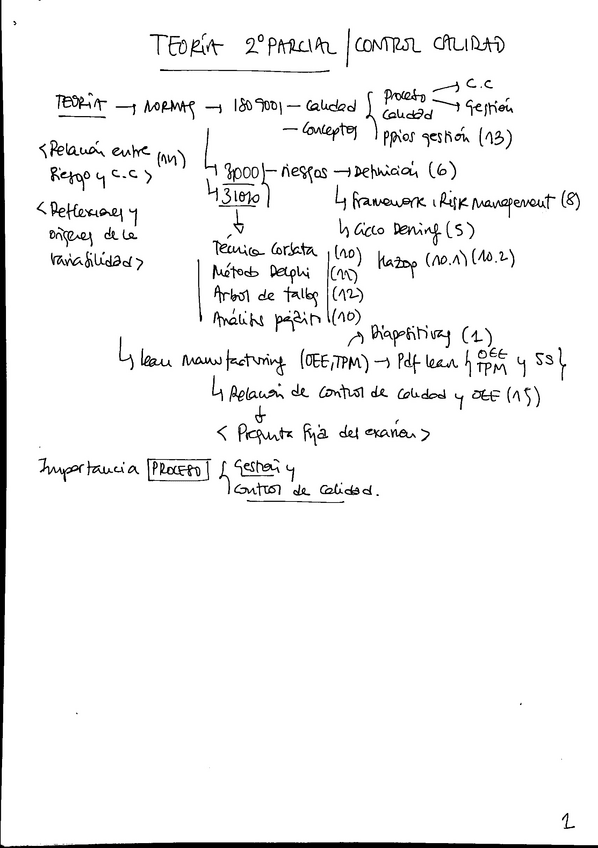 TEORÍA 2º PARCIAL / CONTROL CALIDAD
TEORÍA → NORMAS → ISO 9001 – Calidad { Proceso → C.C
→ Gestión
Calidad
– Conceptos
ppios gestión (13)
<Relación entre (14)
Riesgo y C.C>
31000 – riesgos → Definición (6)
↳ 31010
↳ Framework, Risk management (8)
<Reflexiones y
orígenes de la
variabilidad>
↳ Ciclo Deming (5)
Técnica Corbata (10)
Hazop (10.1) (10.2)
Método Delphi (11)
Arbol de fallos (12)
Análisis (10)
↳ Lean manufacturing (OEE, TPM) → Pdf lean { OEE TPM y 5S }
↗ Diapositivas (1)
↳ Relación de control de calidad y OEE (15)
↓
< Pregunta fija del examen >
Importancia PROCESO { Gestión y
Control de calidad.
1